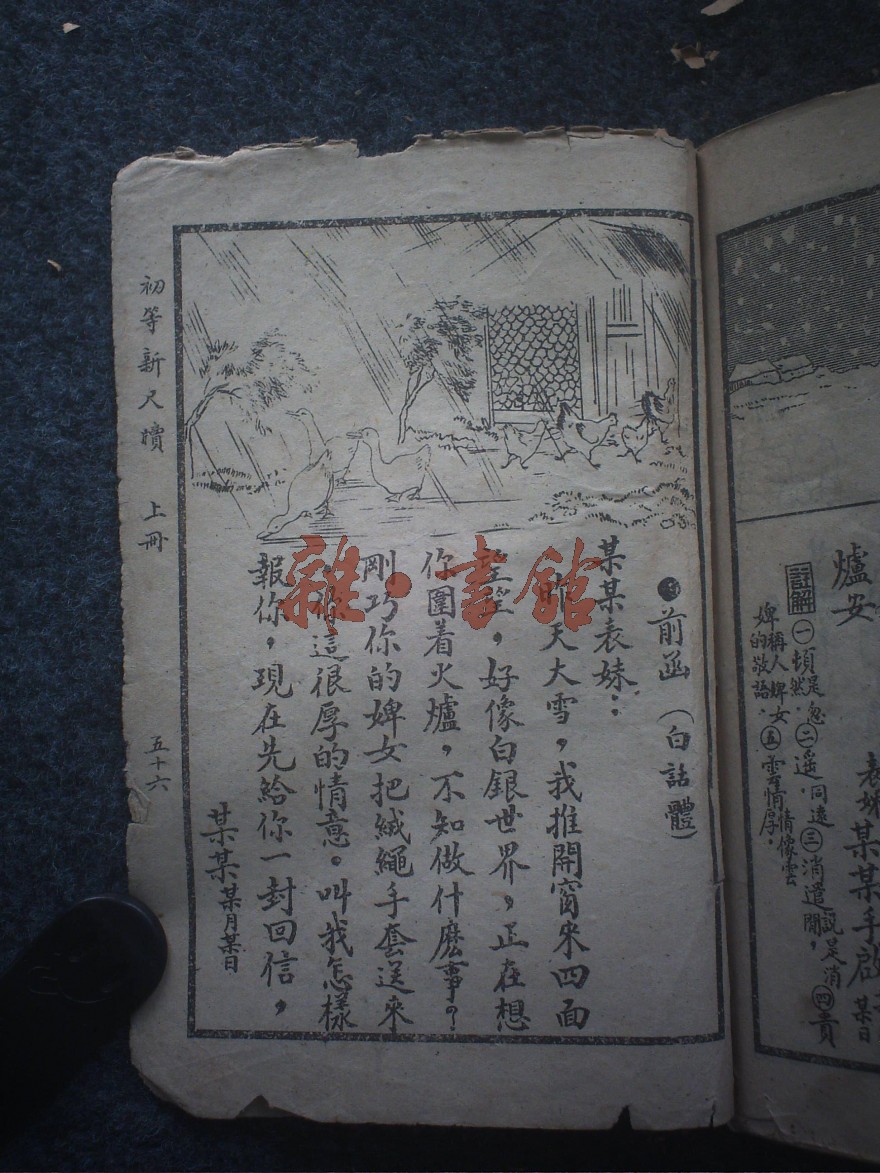 爐安
表妹某某手啟
某日
註解 ㊀頓然 是忽 ㊁遥 同遠 ㊂消遣 說是消閒， ㊃貴
婢 稱人婢女的敬語。 ㊄雲情 情像雲厚。
前函（白話體）
某某表妹：
昨天大雪，我推開窗來四面
望望，好像白銀世界，正在想
你圍着火爐，不知做什麽事？
剛巧你的婢女把絨繩手套送來
你這很厚的情意。叫我怎樣
報你，現在先給你一封回信，
某某 某月某日
初等新尺牘 上冊 五十六
雜·書館